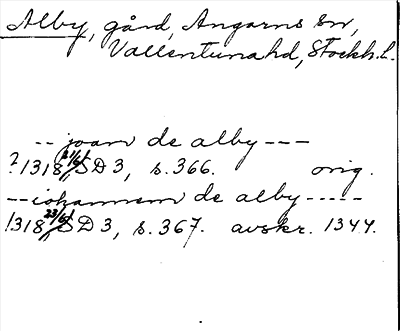 Alby, gård, Angarns sn,
Vallentuna hd, Stockh. l.
-- joan de alby ---
? 1318 21/6 SD 3, s. 366. orig.
-- iohannem de alby -----
1318 23/6 SD 3, s. 367. avskr. 1344.